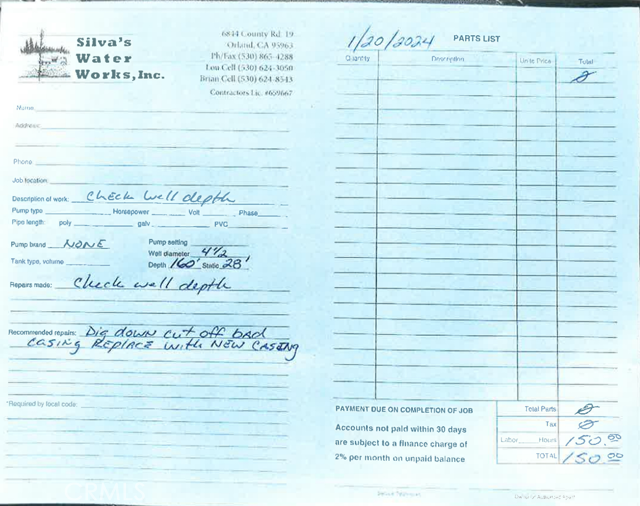 Silva's
Water
Works, Inc.
6844 County Rd. 19
Orland, CA 95963
Ph/Fax (530) 865-4288
Lou Cell (530) 624-3050
Brian Cell (530) 624-8543
Contractors Lic. #659667
Name
Address
Phone
Job location
Description of work: Check well depth
Pump type Horsepower Volt Phase
Pipe length: poly galv PVC
Pump brand NONE
Pump setting
Well diameter 4 1/2
Tank type, volume
Depth 160' Static 28'
Repairs made: Check well depth
Recommended repairs: Dig down cut off bad
casing Replace with New Casing
*Required by local code:
1/20/2024 PARTS LIST
Quantity Description Units Price Total
Ø
PAYMENT DUE ON COMPLETION OF JOB
Accounts not paid within 30 days
are subject to a finance charge of
2% per month on unpaid balance
Total Parts Ø
Tax Ø
Labor Hours 150.00
TOTAL 150.00